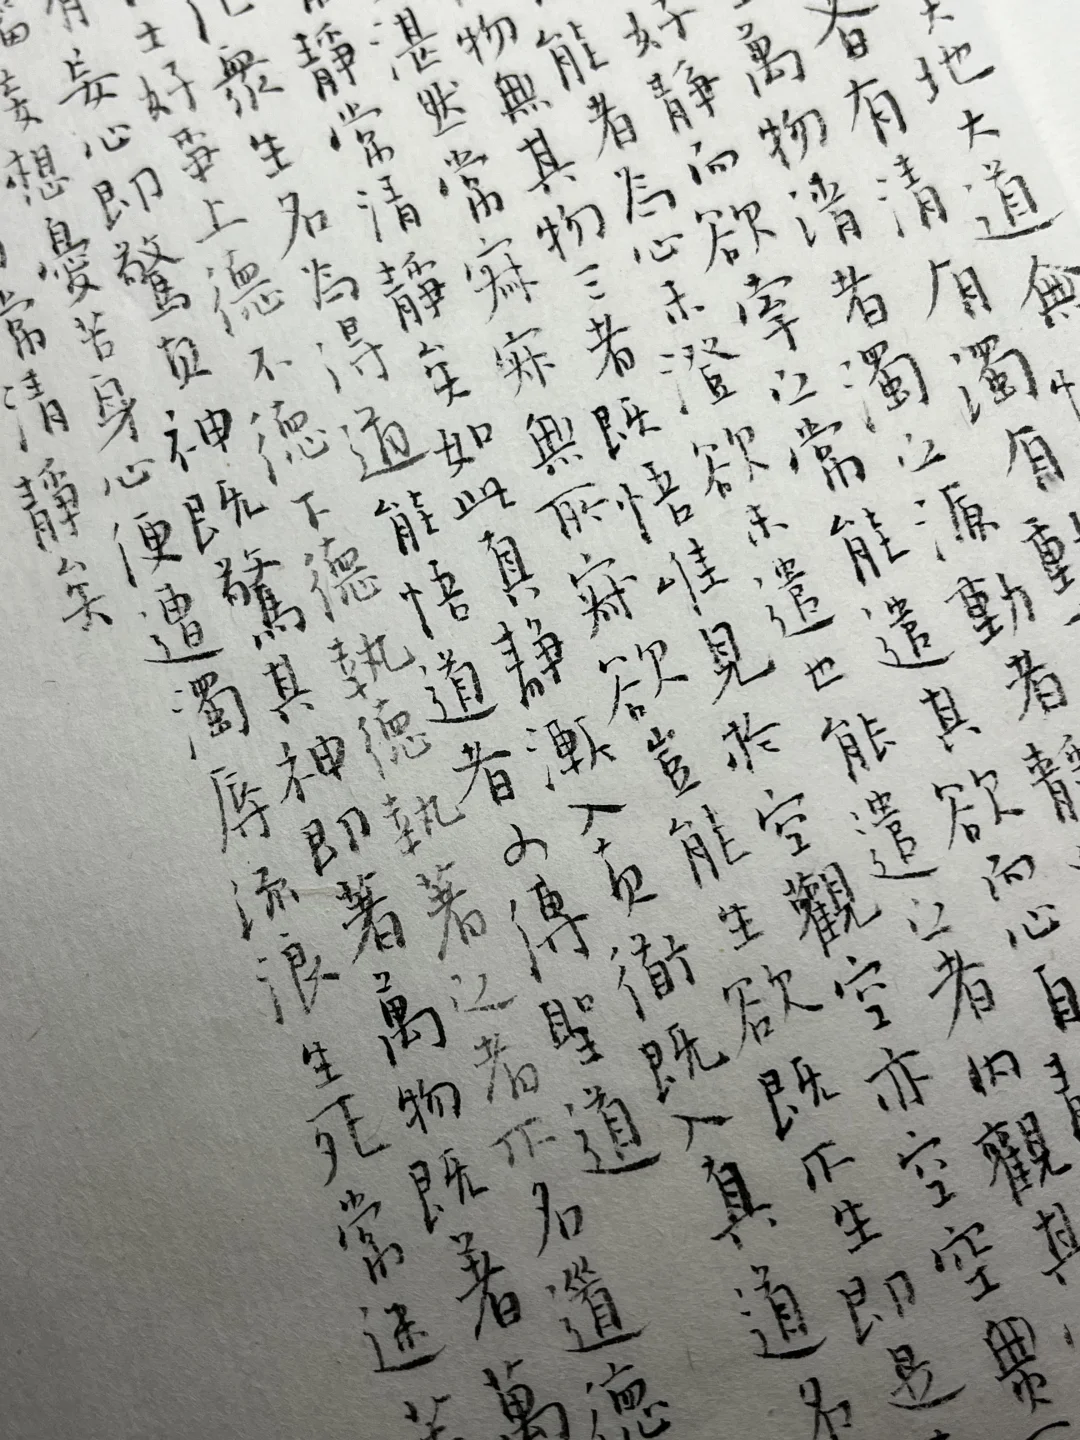 天地大道無情
者有清有濁有動
萬物清者濁之源動者靜
好靜而欲牽之常能遣其欲而心自靜
能者為心未澄欲未遣也能遣之者内觀其
物無其物三者既悟唯見於空觀空亦空空無
湛然常寂寂無所寂欲豈能生欲既不生即是
靜常清靜矣如此真靜漸入真衜既入真道名
眾生名為得道能悟道者可傳聖道
士好爭上德不德下德執德執著之者不名道德
有妄心即驚其神既驚其神即著萬物既著萬
妄想憂苦身心便遭濁辱流浪生死常迷苦
常清靜矣